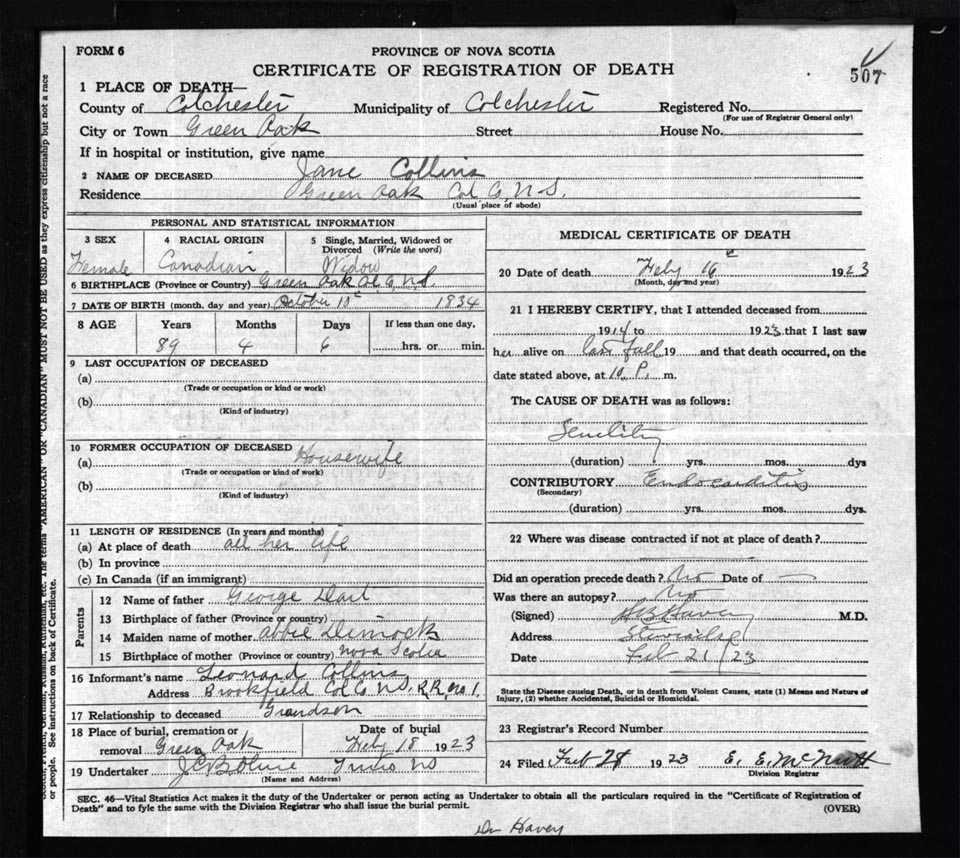 FORM 6
PROVINCE OF NOVA SCOTIA
CERTIFICATE OF REGISTRATION OF DEATH
507
1 PLACE OF DEATH—
County of Colchester Municipality of Colchester Registered No.
(For use of Registrar General only)
City or Town Green Oak Street House No.
If in hospital or institution, give name
2 NAME OF DECEASED Jane Collins
Residence Green Oak Col Co, N.S.
(Usual place of abode)
PERSONAL AND STATISTICAL INFORMATION
3 SEX
Female
4 RACIAL ORIGIN
Canadian
5 Single, Married, Widowed or
Divorced (Write the word)
Widow
6 BIRTHPLACE (Province or Country) Green Oak Col Co, N.S.
7 DATE OF BIRTH (month, day and year) October 10 1834
8 AGE Years Months Days If less than one day,
89 4 6 hrs. or min.
9 LAST OCCUPATION OF DECEASED
(a)
(Trade or occupation or kind or work)
(b)
(Kind of industry)
10 FORMER OCCUPATION OF DECEASED
(a) Housewife
(Trade or occupation or kind of work)
(b)
(Kind of industry)
11 LENGTH OF RESIDENCE (In years and months)
(a) At place of death all her life
(b) In province
(c) In Canada (if an immigrant)
Parents
12 Name of father George Dart
13 Birthplace of father (Province or country)
14 Maiden name of mother Abbie Dimock
15 Birthplace of mother (Province or country) Nova Scotia
16 Informant's name Leonard Collins
Address Brookfield Col Co, N.S. R,R, No 1.
17 Relationship to deceased Grandson
18 Place of burial, cremation or
removal Green Oak
Date of burial
Feby 18 1923
19 Undertaker Truro NS
(Name and Address)
MEDICAL CERTIFICATE OF DEATH
20 Date of death Feby 16 1923
(Month, day and year)
21 I HEREBY CERTIFY, that I attended deceased from
1914 to 1923 that I last saw
her alive on last fall 19 and that death occurred, on the
date stated above, at 10 P. m.
The CAUSE OF DEATH was as follows:
Senility
(duration) yrs. mos. dys
CONTRIBUTORY Endocarditis
(Secondary)
(duration) yrs. mos. dys.
22 Where was disease contracted if not at place of death?
Did an operation precede death? No Date of —
Was there an autopsy? No
(Signed) Havey M.D.
Address Stewiacke
Date Feb 21/23
State the Disease causing Death, or in death from Violent Causes, state (1) Means and Nature of
Injury, (2) whether Accidental, Suicidal or Homicidal.
23 Registrar's Record Number
24 Filed Feb 28 1923 E. E. McNutt
Division Registrar
SEC. 46—Vital Statistics Act makes it the duty of the Undertaker or person acting as Undertaker to obtain all the particulars required in the "Certificate of Registration of
Death" and to fyle the same with the Division Registrar who shall issue the burial permit.
(OVER)
Dr Havey
etc. The terms "AMERICAN" OR "CANADIAN" MUST NOT BE USED as they express citizenship but not a race
or people. See instructions on back of Certificate.